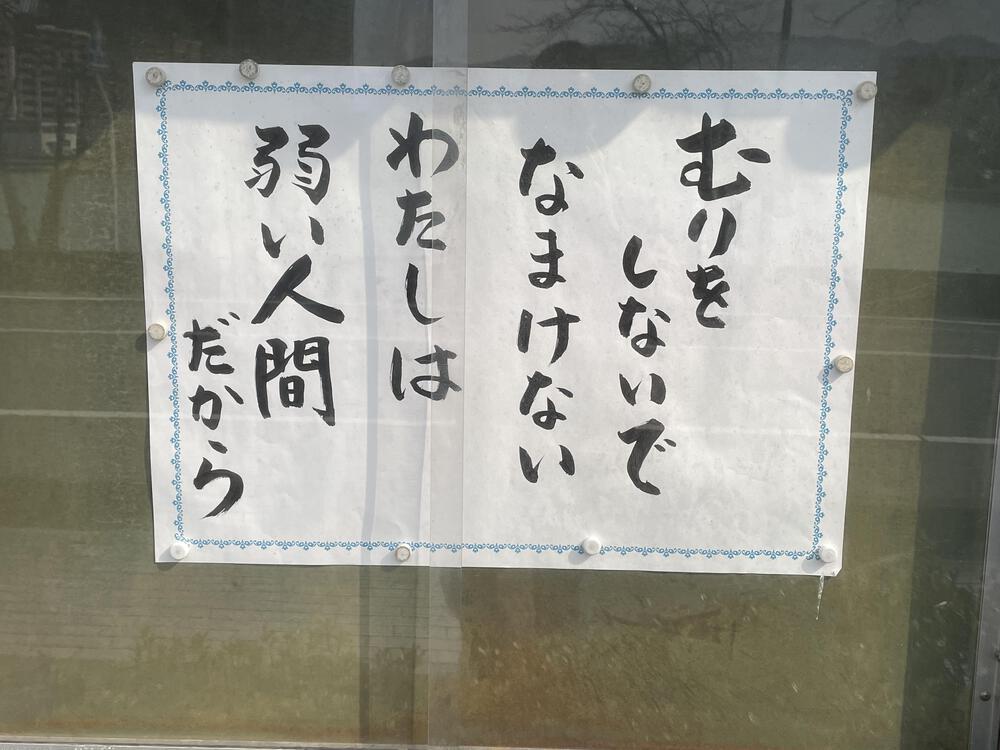 むりを
しないで
なまけない
わたしは
弱い人間
だから